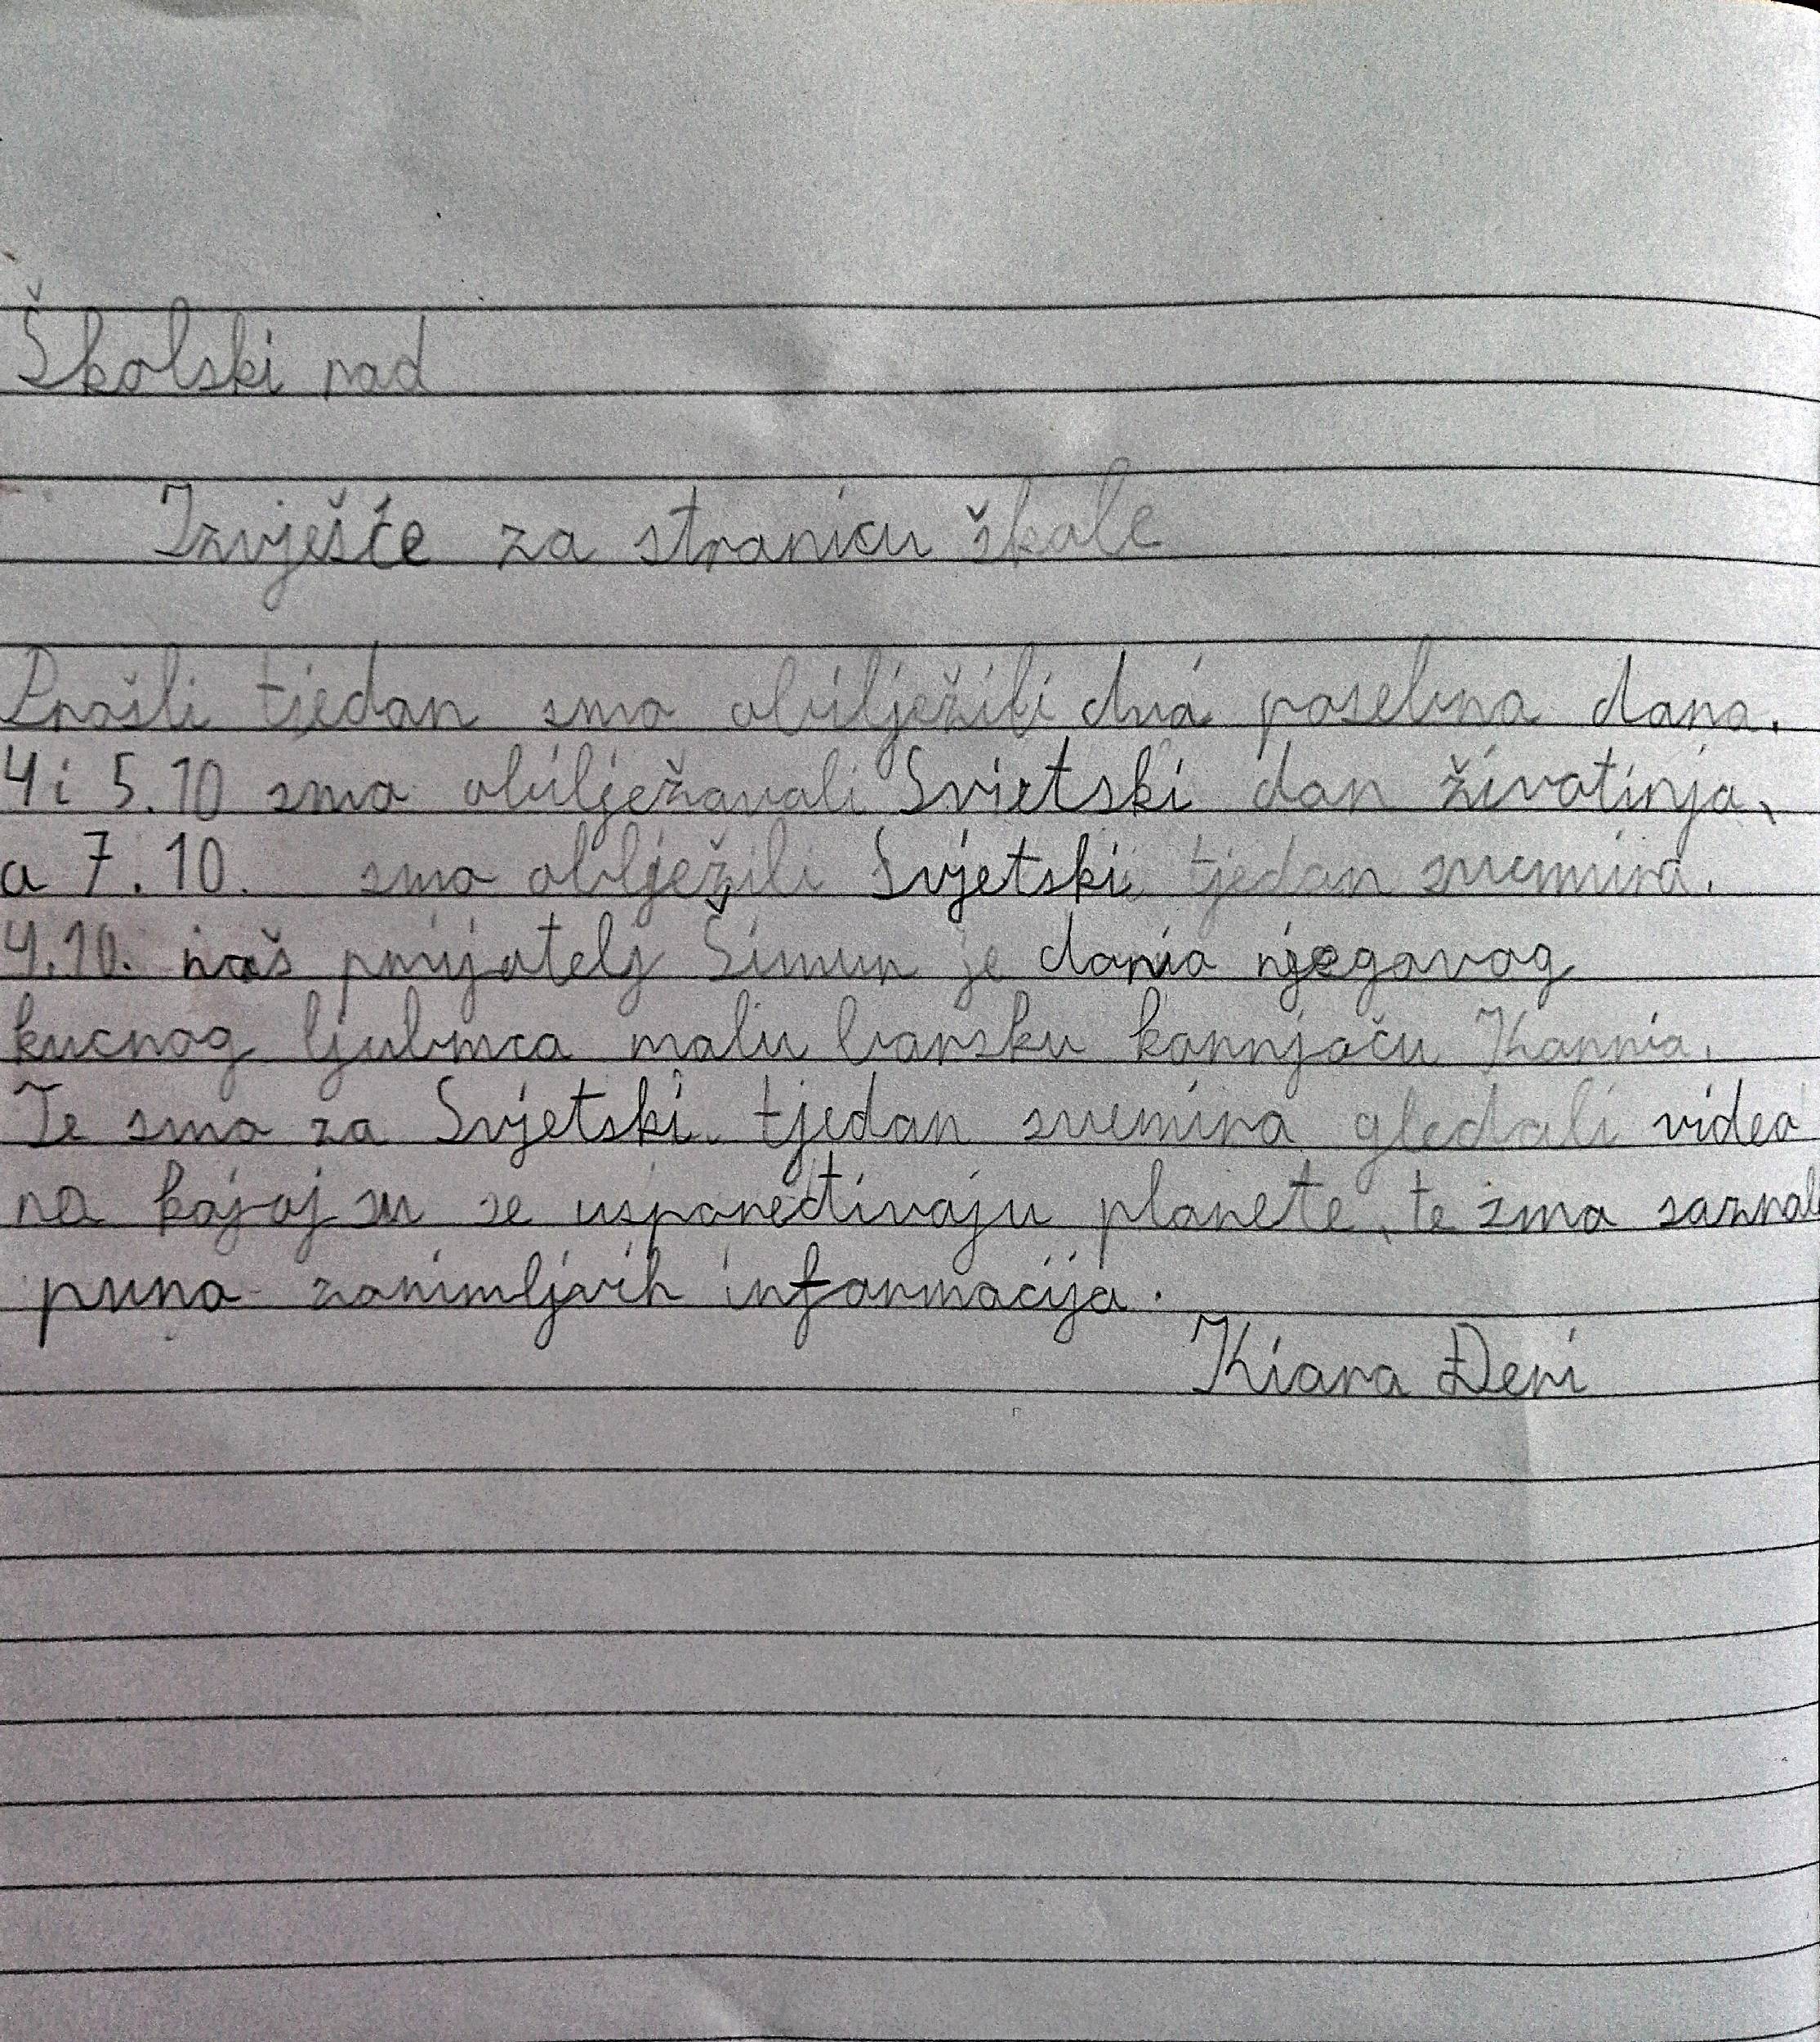 Školski rad
Izvješće za stranicu škole
Prošli tjedan smo obilježili dva posebna dana.
4 i 5.10 smo obilježavali Svjetski dan životinja,
a 7.10. smo oblježili Svjetski tjedan svemira.
4.10. naš prijatelj Šimun je donio njegovog
kucnog ljubmca malu barsku kornjaču Kornia.
Te smo za Svjetski tjedan svemira gledali video
na kojoj su se uspoređivaju planete, te smo saznali
puno zanimljivih informacija.
Kiara Đeri